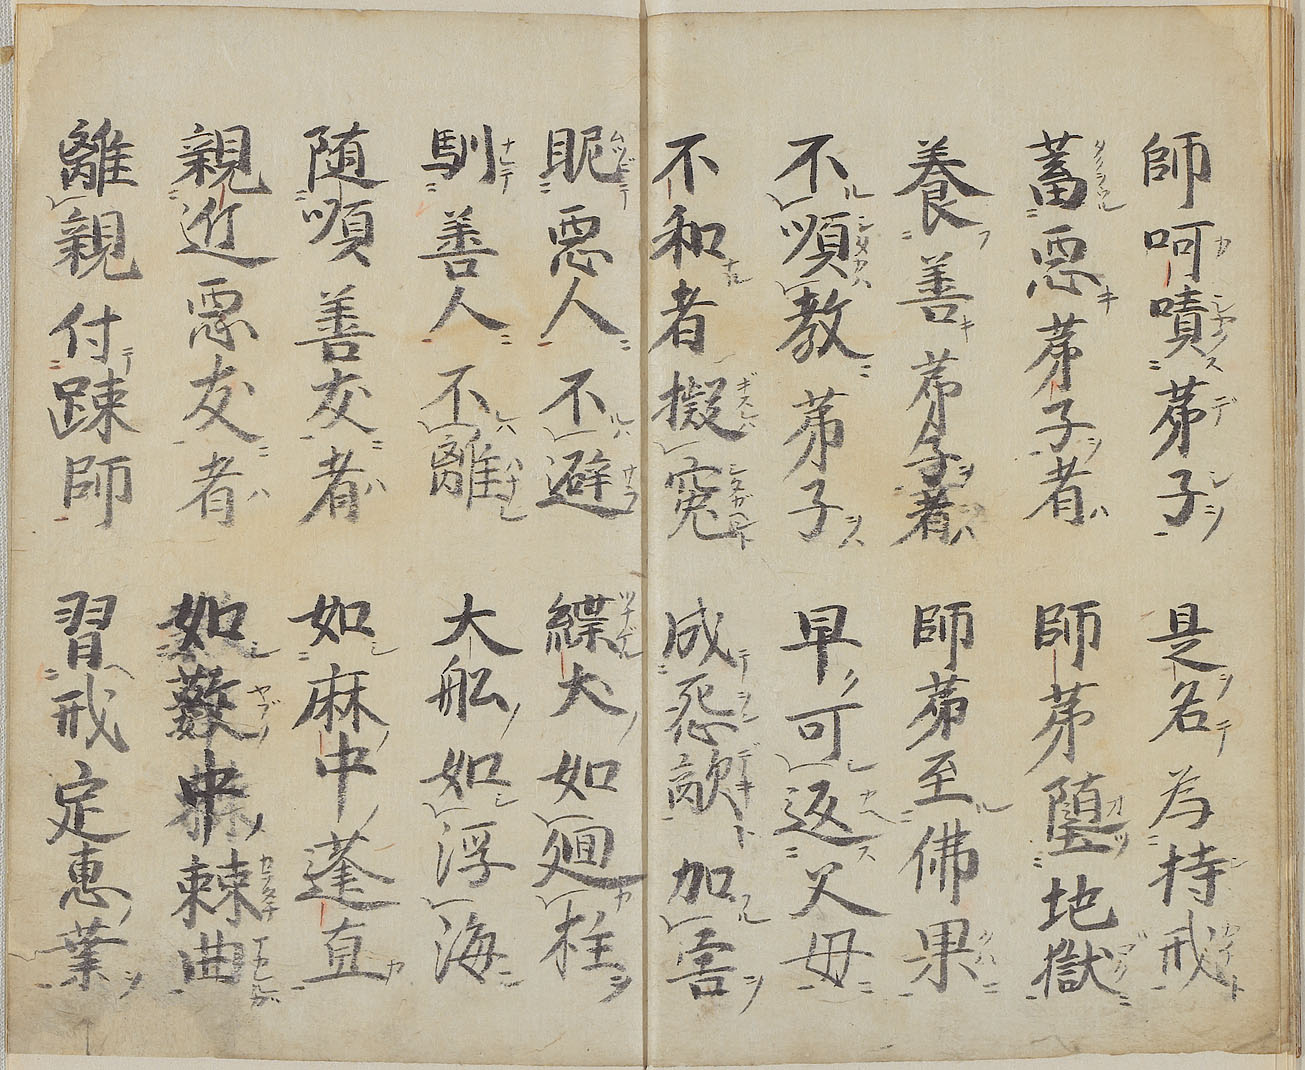 師呵嘖苐子 是名為持戒
蓄悪苐子者 師苐堕地獄
養善苐子者 師苐至佛果
不順教苐子 早可返父母
不和者擬寃 成怨敵加害
眤悪人不避 緤犬如廻柱
馴善人不離 大船如浮海
随順善友者 如麻中蓬直
親近悪友者 如藪中棘曲
離親付踈師 習戒定惠業